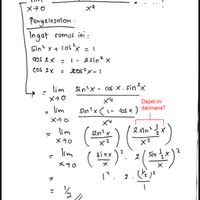 x→0 x⁴
Penyelesaian :
Ingat rumus ini :
sin² x + cos² x = 1
cos 2x = 1 - 2 sin² x
cos 2x = 2cos² x - 1
= lim x→0 (sin² x - cos x . sin² x) / x⁴
= lim x→0 (sin² x (1 - cos x)) / x⁴
Dapet ini darimana?
= lim x→0 (sin² x / x²) (2 sin² ½ x / x²)
= lim x→0 (sin x / x)² . 2 (sin ½ x / x)²
= 1² . 2 . (½)² / 1
= ½